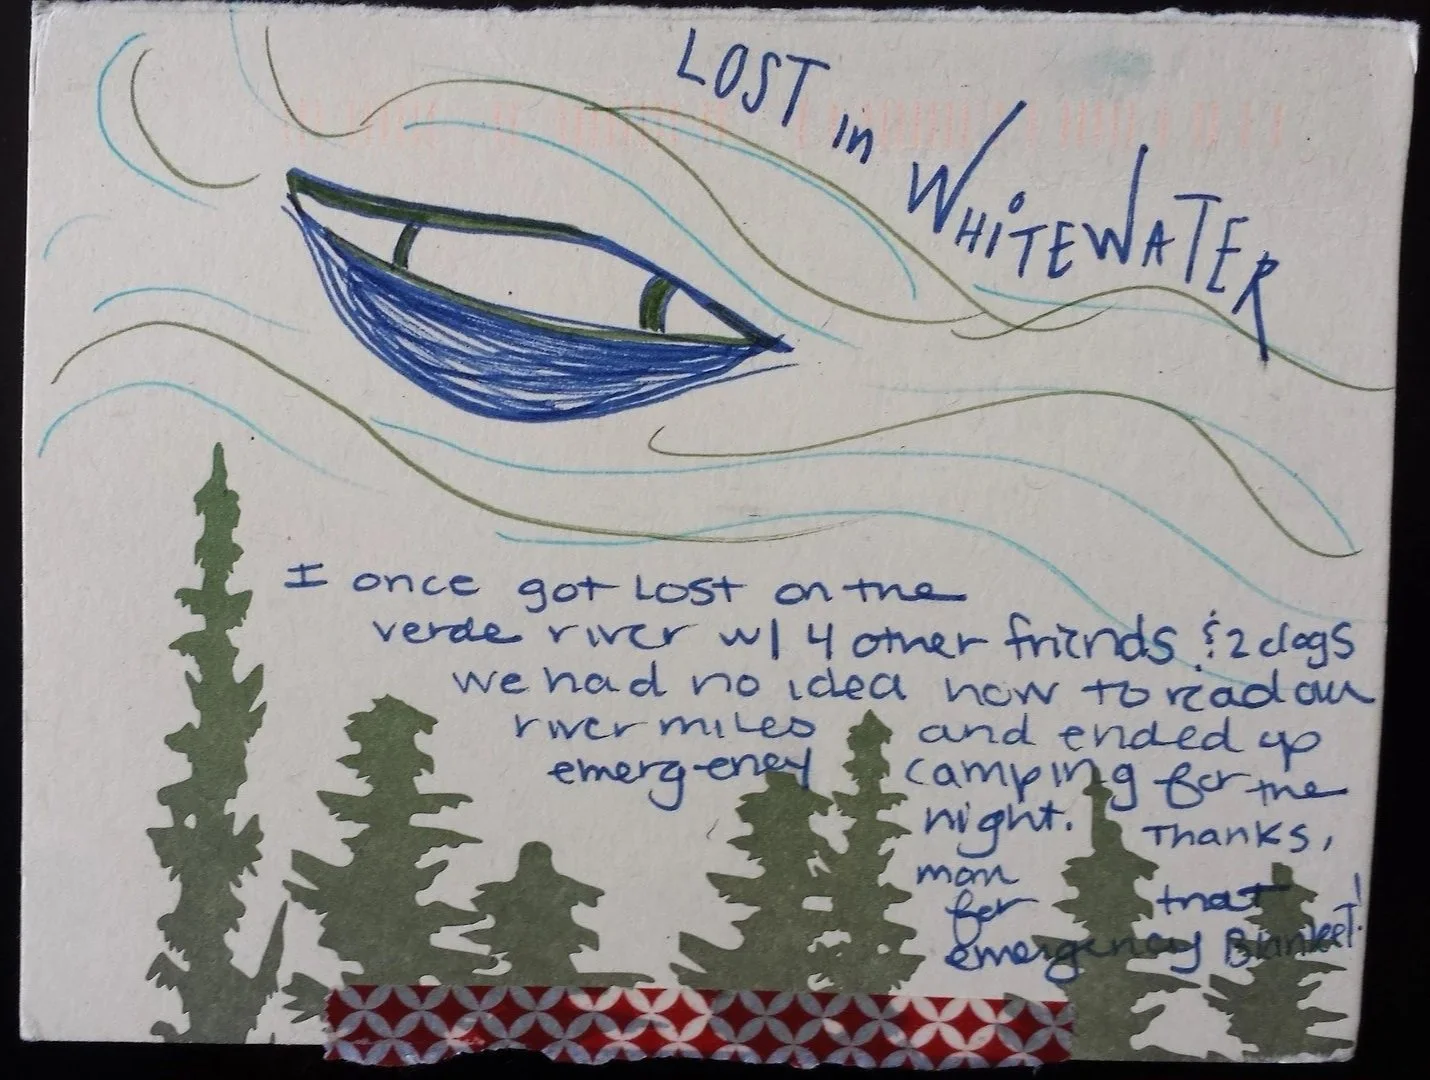 LOST in WHiTEWATER
I once got Lost on the
verde river w/ 4 other friends & 2 dogs
we had no idea how to read our
river miles and ended up
emergency camping for the
night. Thanks,
mom for that
emergency Blanket!